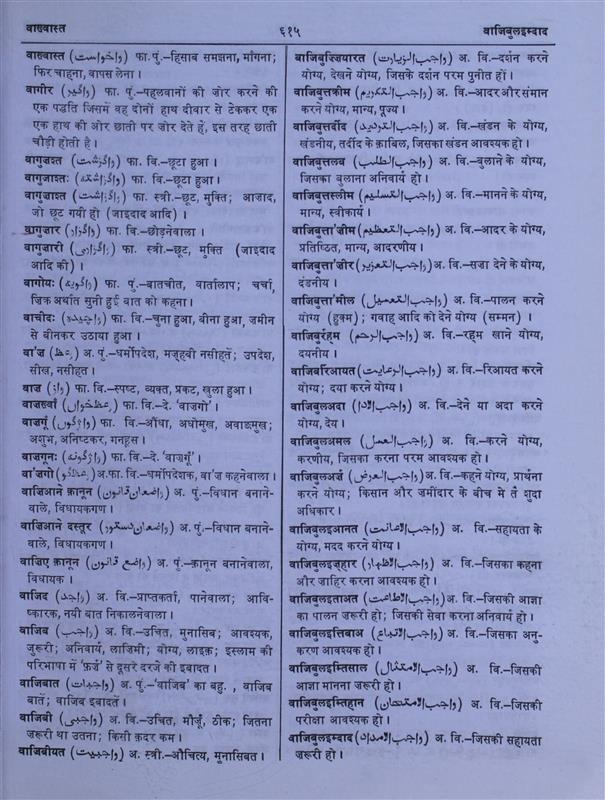 वाख़्वास्त
६१५
वाजिबुलइम्दाद
वाख़्वास्त (واخواست) फा. पुं.–हिसाब समझना, माँगना;
फिर चाहना, वापस लेना।
वागीर (واگیر) फा. पुं.–पहलवानों की ज़ोर करने की
एक पद्धति जिसमें वह दोनों हाथ दीवार से टेककर एक
एक हाथ की ओर छाती पर ज़ोर देते हैं, इस तरह छाती
चौड़ी होती है।
वागुज़श्त (واگزشت) फा. वि.–छूटा हुआ।
वागुज़ाश्तः (واگزاشتہ) फा. वि.–छूटा हुआ।
वागुज़ाश्त (واگزاشت) फा. स्त्री.–छूट, मुक्ति; आज़ाद,
जो छूट गयी हो (जाइदाद आदि)।
वागुज़ार (واگزار) फा. वि.–छोड़नेवाला।
वागुज़ारी (واگزاری) फा. स्त्री.–छूट, मुक्ति (जाइदाद
आदि की)।
वागोयः (واگویہ) फा. पुं.–बातचीत, वार्तालाप; चर्चा,
ज़िक्र अर्थात सुनी हुई बात को कहना।
वाचीदः (واچیدہ) फा. वि.–चुना हुआ, बीना हुआ, ज़मीन
से बीनकर उठाया हुआ।
वा'ज़ (وعظ) अ. पुं.–धर्मोपदेश, मज़्हबी नसीहतें; उपदेश,
सीख, नसीहत।
वाज़ (واز) फा. वि.–स्पष्ट, व्यक्त, प्रकट, खुला हुआ।
वाज़ख़्वाँ (وعظخواں) फा. वि.–दे. 'वाज़गो'।
वाज़गूँ (واژگوں) फा. वि.–औंधा, अधोमुख, अवाङमुख;
अशुभ, अनिष्टकर, मनहूस।
वाज़गूनः (واژگونہ) फा. वि.–दे. 'वाज़गूँ'।
वा'ज़गो (وعظگو) अ.फा. वि.–धर्मोपदेशक, वा'ज़ कहनेवाला।
वाज़िआने क़ानून (واضعان قانون) अ. पुं.–विधान बनाने-
वाले, विधायकगण।
वाज़िआने दस्तूर (واضعان دستور) अ. पुं.–विधान बनाने-
वाले, विधायकगण।
वाज़िए क़ानून (واضع قانون) अ. पुं.–क़ानून बनानेवाला,
विधायक।
वाजिद (واجد) अ. पुं.–प्राप्तकर्ता, पानेवाला; आवि-
ष्कारक, नयी बात निकालनेवाला।
वाजिब (واجب) अ. वि.–उचित, मुनासिब; आवश्यक,
ज़ुरूरी; अनिवार्य, लाज़िमी; योग्य, लाइक़; इस्लाम की
परिभाषा में 'फ़र्ज़' से दूसरे दरजे की इबादत।
वाजिबात (واجبات) अ. पुं.–'वाजिब' का बहु. , वाजिब
बातें; वाजिब इबादतें।
वाजिबी (واجبی) अ. वि.–उचित, मौज़ूँ, ठीक; जितना
ज़रूरी था उतना; किसी क़दर कम।
वाजिबीयत (واجبیت) अ. स्त्री.–औचित्य, मुनासिबत।
वाजिबुज़्ज़ियारत (واجب الزیارت) अ. वि.–दर्शन करने
योग्य, देखने योग्य, जिसके दर्शन परम पुनीत हों।
वाजिबुत्तक्रीम (واجب التکریم) अ. वि.–आदर और संमान
करने योग्य, मान्य, पूज्य।
वाजिबुत्तर्दीद (واجب التردید) अ. वि.–खंडन के योग्य,
खंडनीय, तर्दीद के क़ाबिल, जिसका खंडन आवश्यक हो।
वाजिबुत्तलब (واجب الطلب) अ. वि.–बुलाने के योग्य,
जिसका बुलाना अनिवार्य हो।
वाजिबुत्तस्लीम (واجب التسلیم) अ. वि.–मानने के योग्य,
मान्य, स्वीकार्य।
वाजिबुत्ता'ज़ीम (واجب التعظیم) अ. वि.–आदर के योग्य,
प्रतिष्ठित, मान्य, आदरणीय।
वाजिबुत्ता'ज़ीर (واجب التعزیر) अ. वि.–सज़ा देने के योग्य,
दंडनीय।
वाजिबुत्ता'मील (واجب التعمیل) अ. वि.–पालन करने
योग्य (हुक्म); गवाह आदि को देने योग्य (सम्मन)।
वाजिबुर्रहम (واجب الرحم) अ. वि.–रहम खाने योग्य,
दयनीय।
वाजिबुर्रिआयत (واجب الرعایت) अ. वि.–रिआयत करने
योग्य; दया करने योग्य।
वाजिबुलअदा (واجب الادا) अ. वि.–देने या अदा करने
योग्य, देय।
वाजिबुलअमल (واجب العمل) अ. वि.–करने योग्य,
करणीय, जिसका करना परम आवश्यक हो।
वाजिबुलअर्ज़ (واجب العرض) अ. वि.–कहने योग्य, प्रार्थना
करने योग्य; किसान और ज़मींदार के बीच में तै शुदा
अधिकार।
वाजिबुलइआनत (واجب الاعانت) अ. वि.–सहायता के
योग्य, मदद करने योग्य।
वाजिबुलइज़्हार (واجب الاظہار) अ. वि.–जिसका कहना
और ज़ाहिर करना आवश्यक हो।
वाजिबुलइताअत (واجب الاطاعت) अ. वि.–जिसकी आज्ञा
का पालन ज़रूरी हो; जिसकी सेवा करना अनिवार्य हो।
वाजिबुलइत्तिबाअ (واجب الاتباع) अ. वि.–जिसका अनु-
करण आवश्यक हो।
वाजिबुलइम्तिसाल (واجب الامتثال) अ. वि.–जिसकी
आज्ञा मानना ज़रूरी हो।
वाजिबुलइम्तिहान (واجب الامتحان) अ. वि.–जिसकी
परीक्षा आवश्यक हो।
वाजिबुलइम्दाद (واجب الامداد) अ. वि.–जिसकी सहायता
ज़रूरी हो।